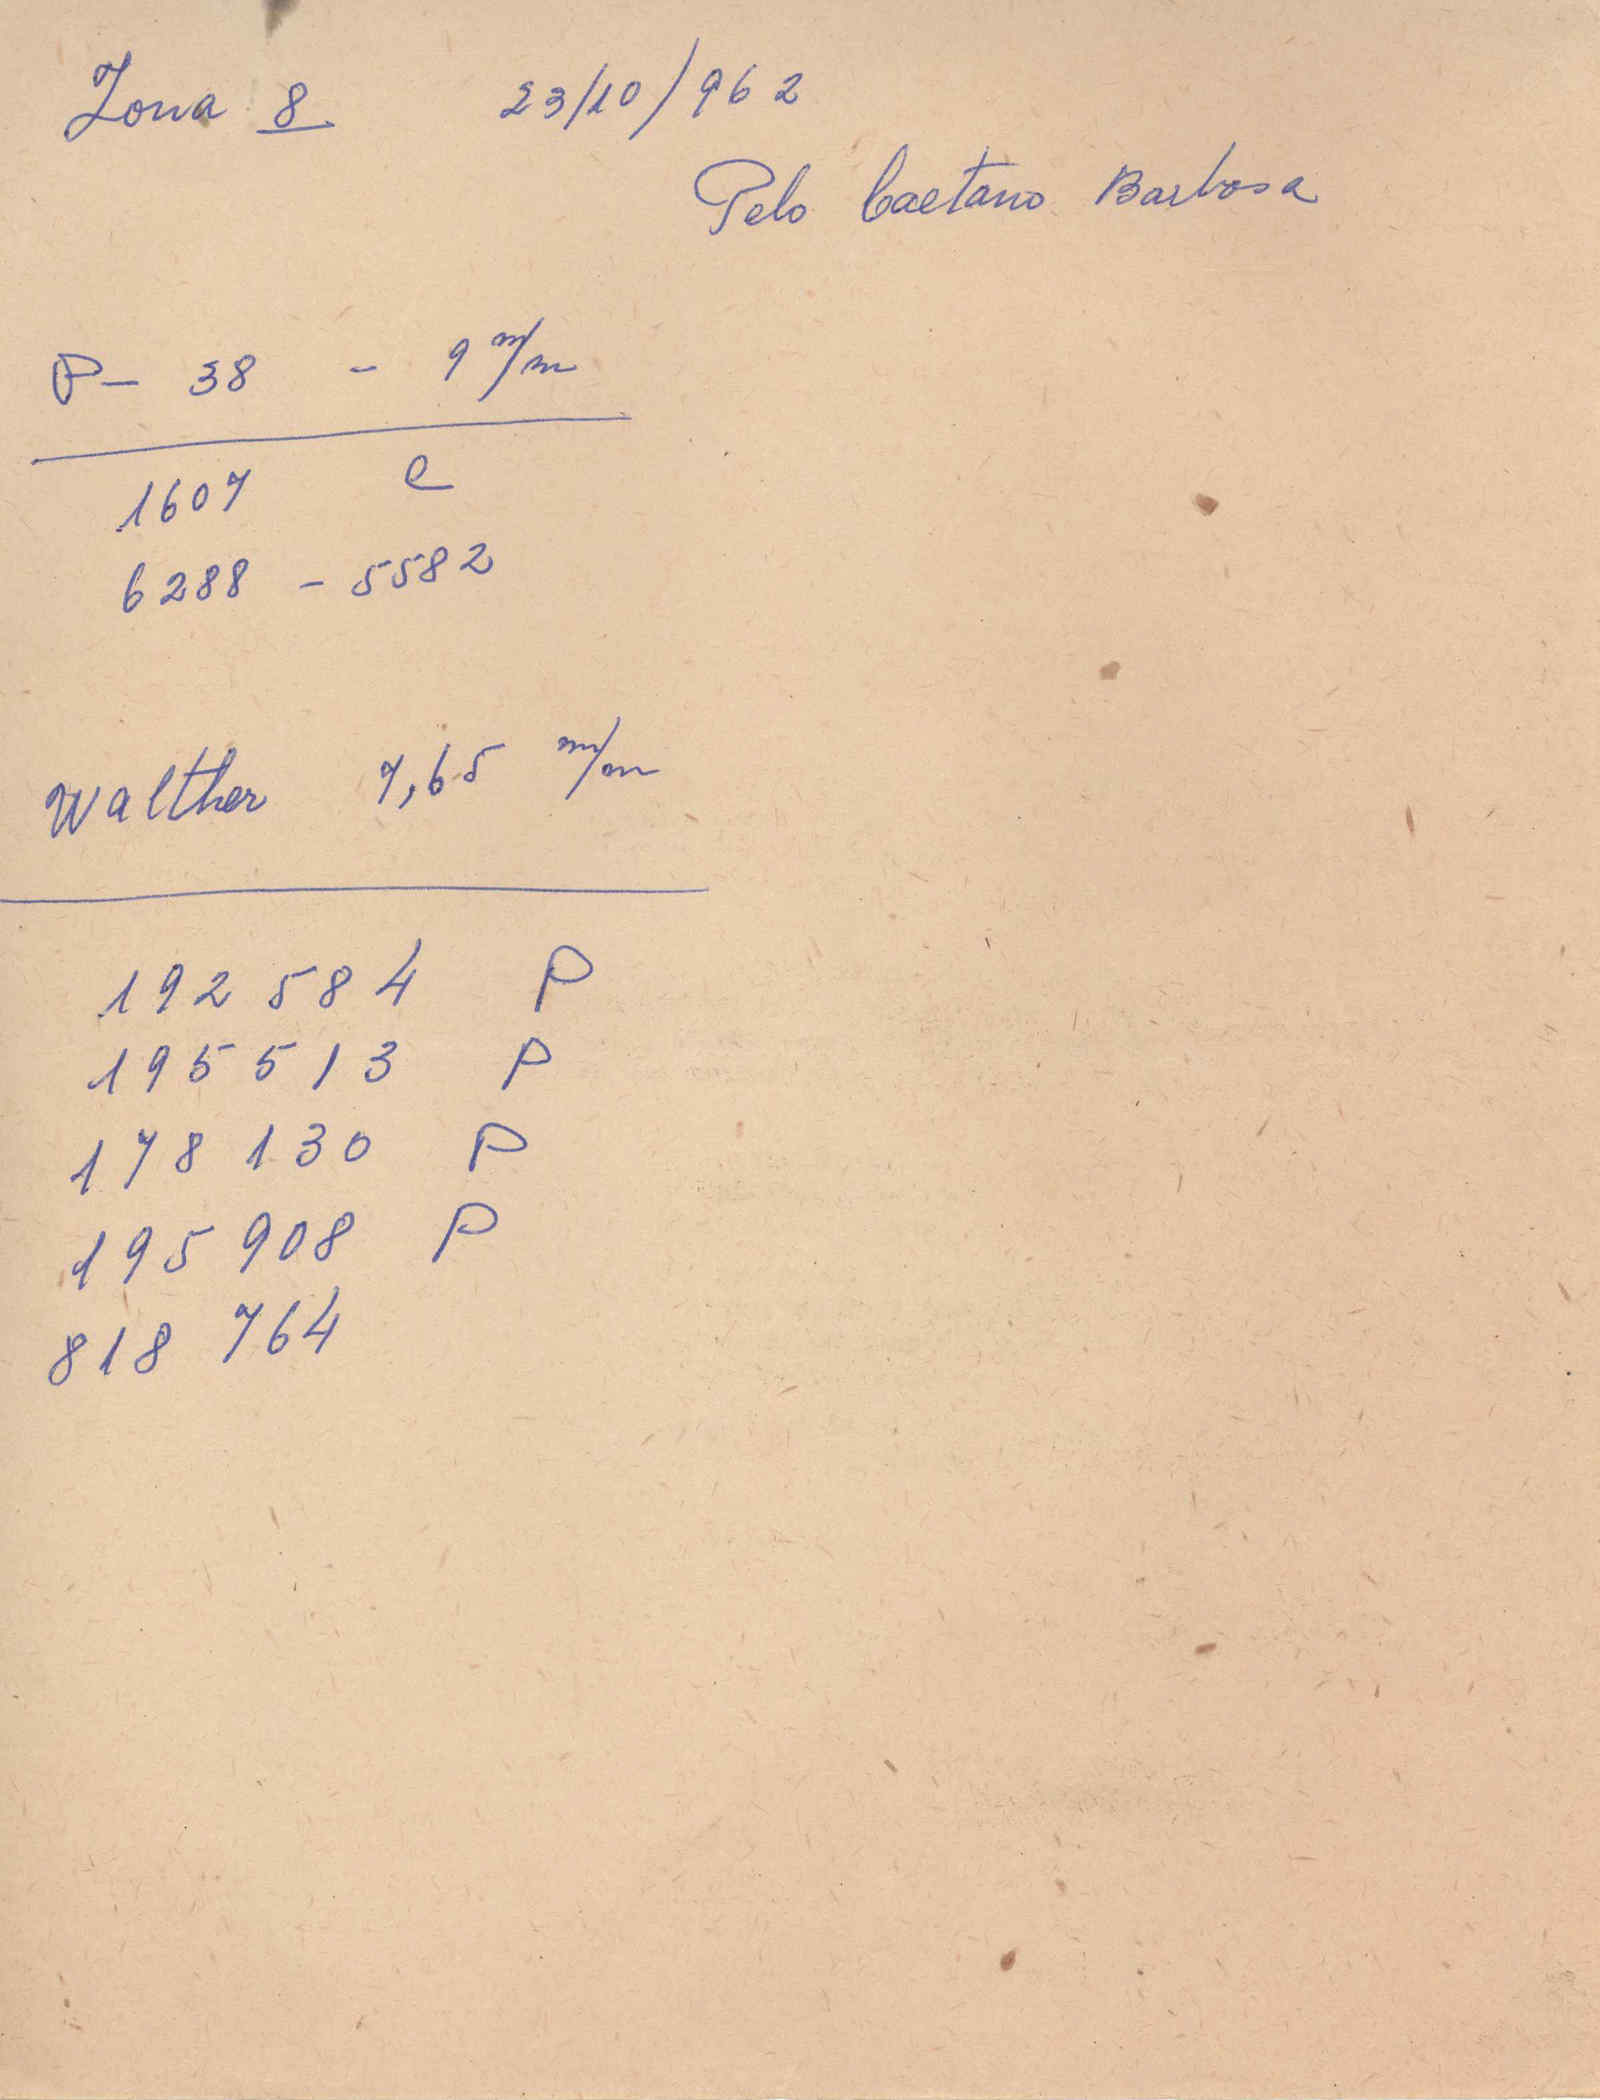 Zona 8 23/10/962
Pelo Caetano Barbosa
P- 38 - 9 m/m
1607 e
6288 - 5582
Walther 7,65 m/m
192 584 P
195 513 P
178 130 P
195 908 P
818 764